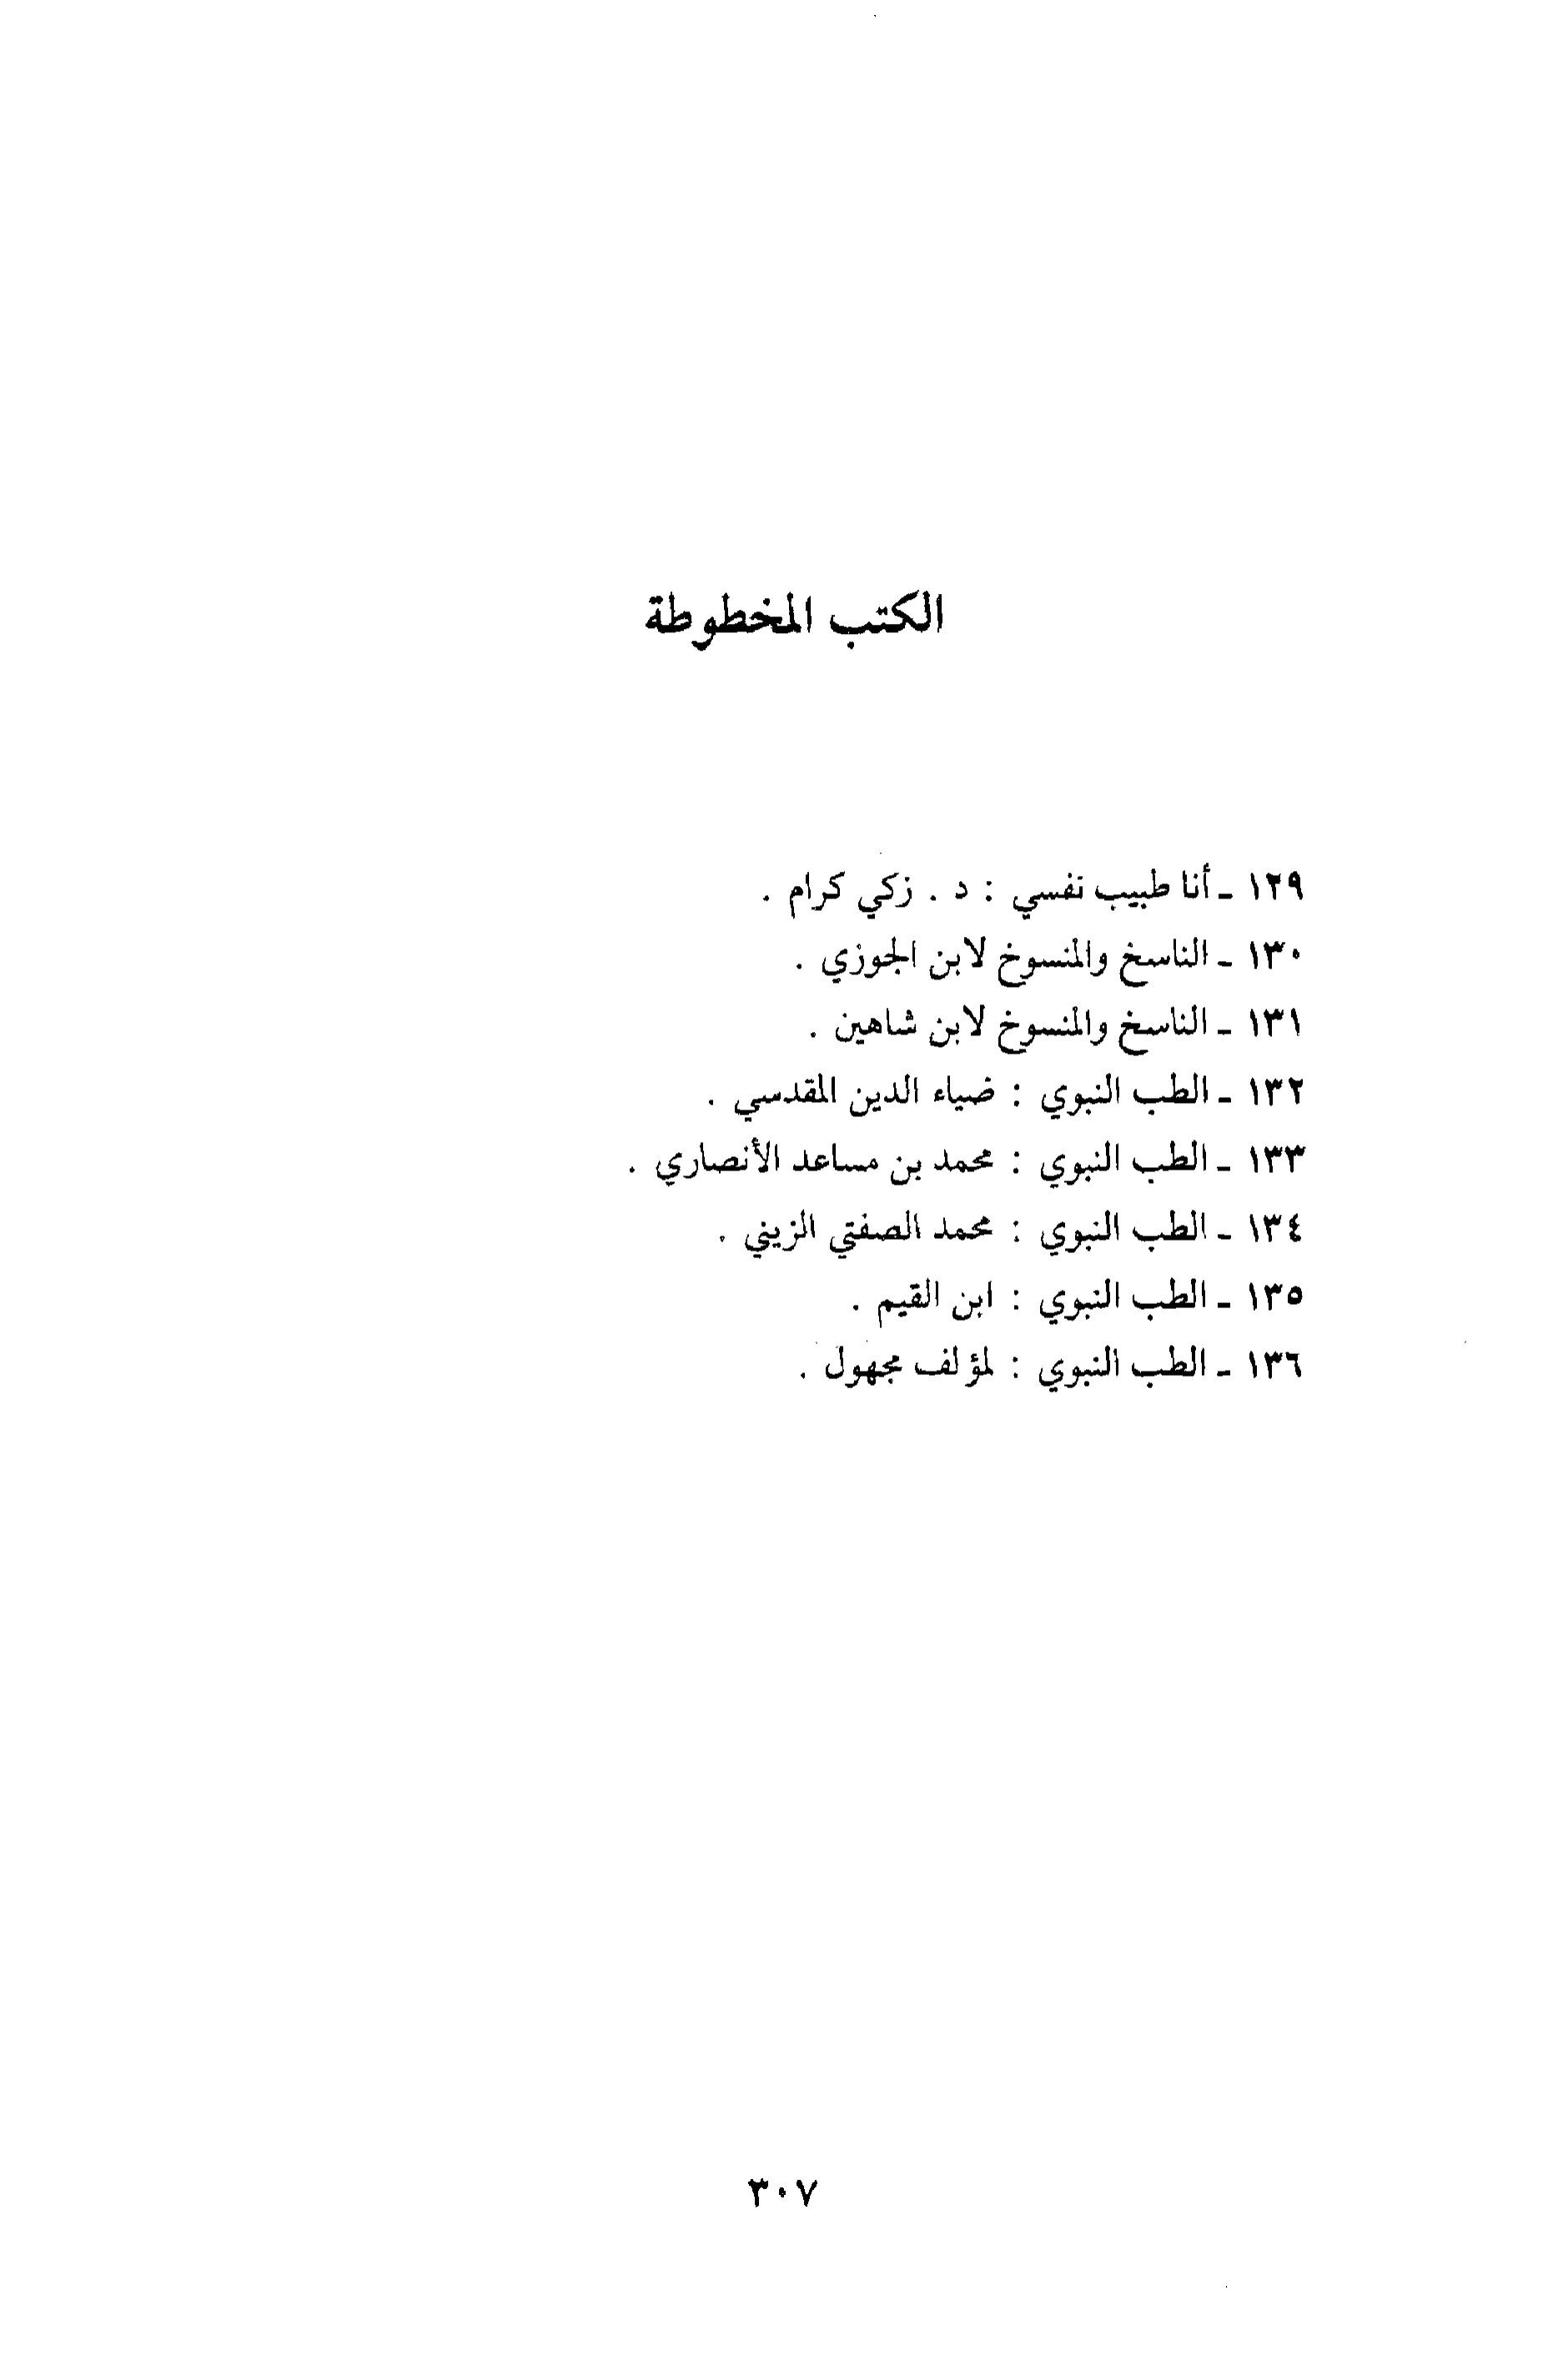 الكتب المخطوطة
١٢٩ ـ أنا طبيب نفسي : د . زكي كرام .
١٣٠ ـ الناسخ والمنسوخ لابن الجوزي .
١٣١ ـ الناسخ والمنسوخ لابن شاهين .
١٣٢ ـ الطب النبوي : ضياء الدين المقدسي .
١٣٣ ـ الطب النبوي : محمد بن مساعد الأنصاري .
١٣٤ ـ الطب النبوي : محمد الصفتي الزيني .
١٣٥ ـ الطب النبوي : ابن القيم .
١٣٦ ـ الطب النبوي : لمؤلف مجهول .
٣٠٧